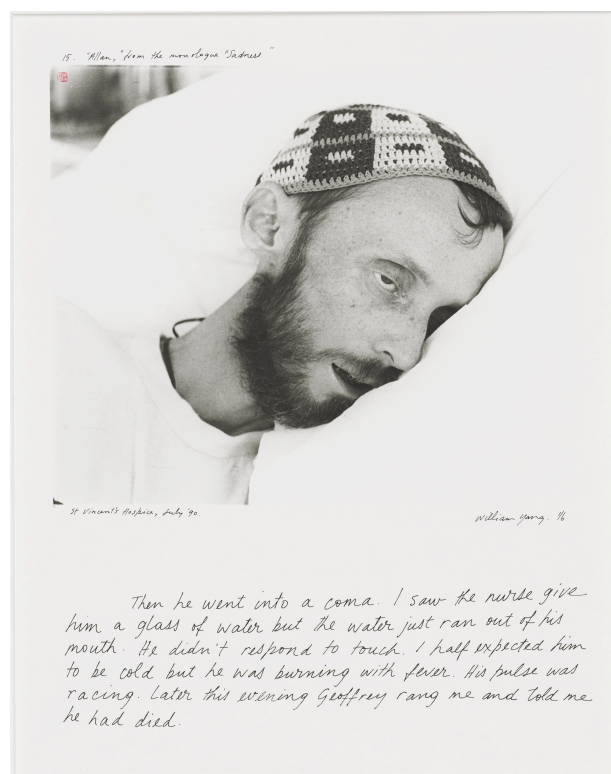 15. "Allan," from the monologue "Sadness."
St Vincent's Hospice, July '90.
William Yang. 1/6
Then he went into a coma. I saw the nurse give
him a glass of water but the water just ran out of his
mouth. He didn't respond to touch. I half expected him
to be cold but he was burning with fever. His pulse was
racing. Later this evening Geoffrey rang me and told me
he had died.